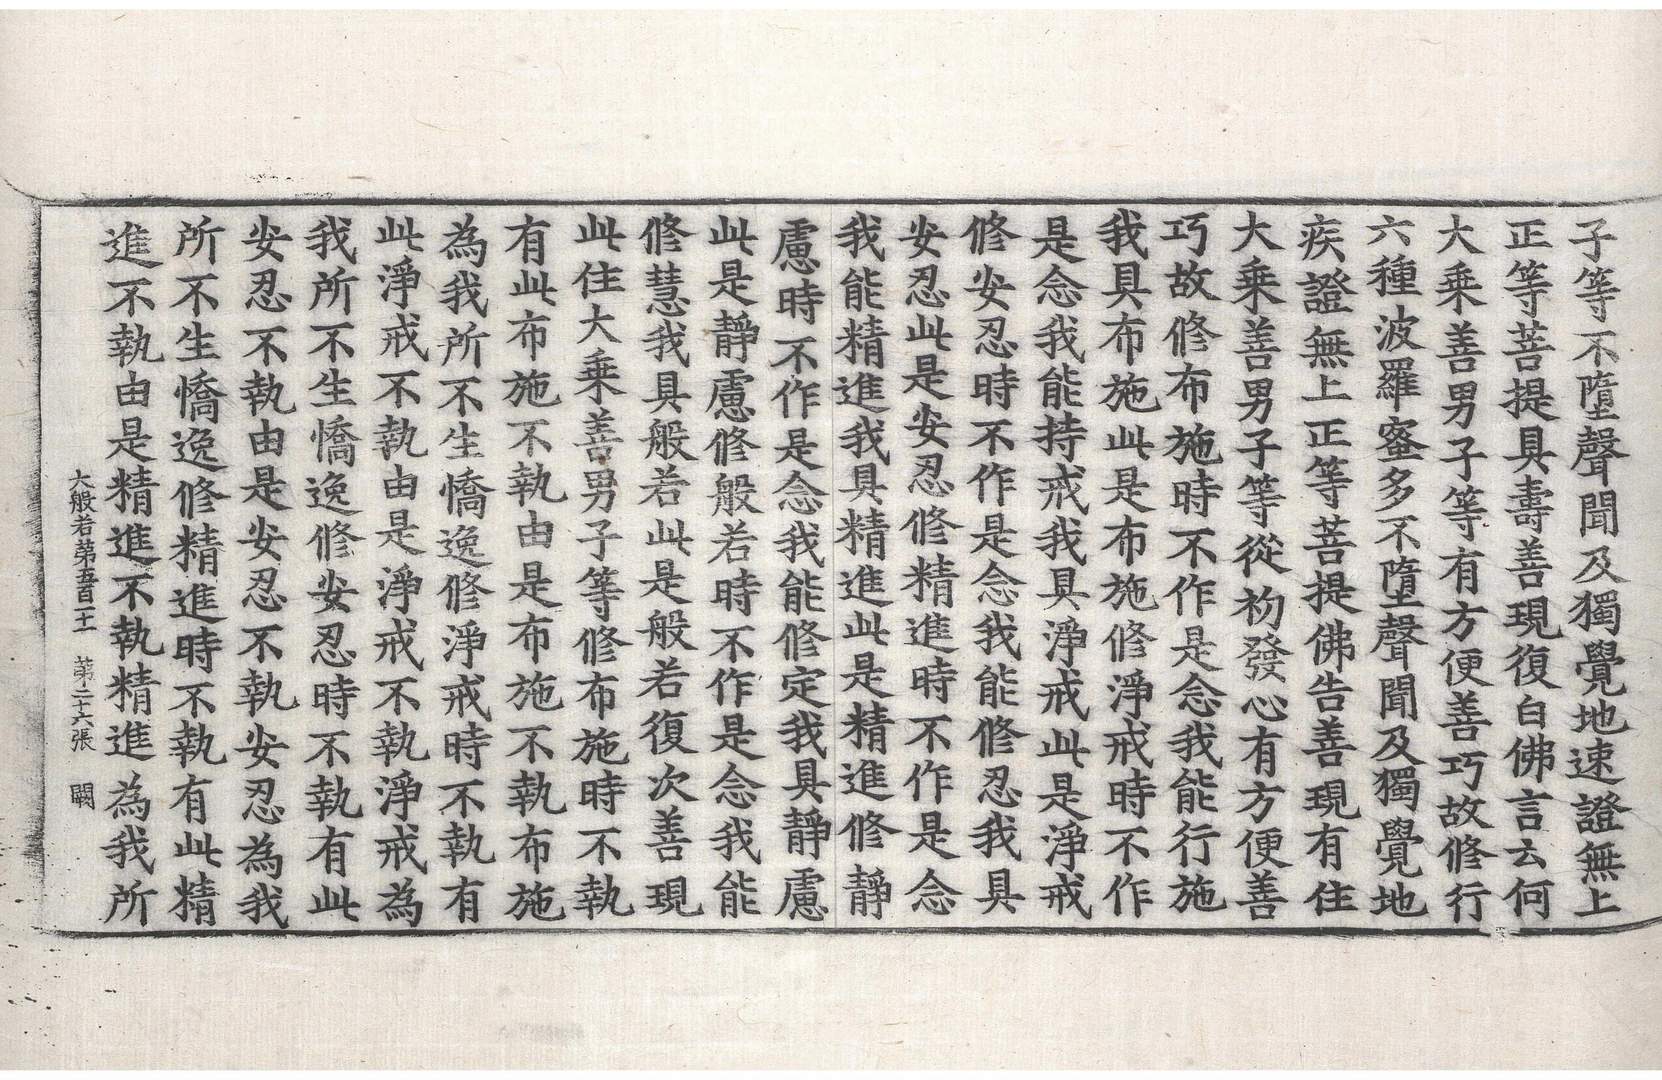 子等不墮聲聞及獨覺地速證無上
正等菩提具壽善現復白佛言云何
大乘善男子等有方便善巧故修行
六種波羅蜜多不墮聲聞及獨覺地
疾證無上正等菩提佛告善現有住
大乘善男子等從初發心有方便善
巧故修布施時不作是念我能行施
我具布施此是布施修淨戒時不作
是念我能持戒我具淨戒此是淨戒
修安忍時不作是念我能修忍我具
安忍此是安忍修精進時不作是念
我能精進我具精進此是精進修靜
慮時不作是念我能修定我具靜慮
此是靜慮修般若時不作是念我能
修慧我具般若此是般若復次善現
此住大乘善男子等修布施時不執
有此布施不執由是布施不執布施
為我所不生憍逸修淨戒時不執有
此淨戒不執由是淨戒不執淨戒為
我所不生憍逸修安忍時不執有此
安忍不執由是安忍不執安忍為我
所不生憍逸修精進時不執有此精
進不執由是精進不執精進為我所
大般若第五百二十一 第二十六張 闕